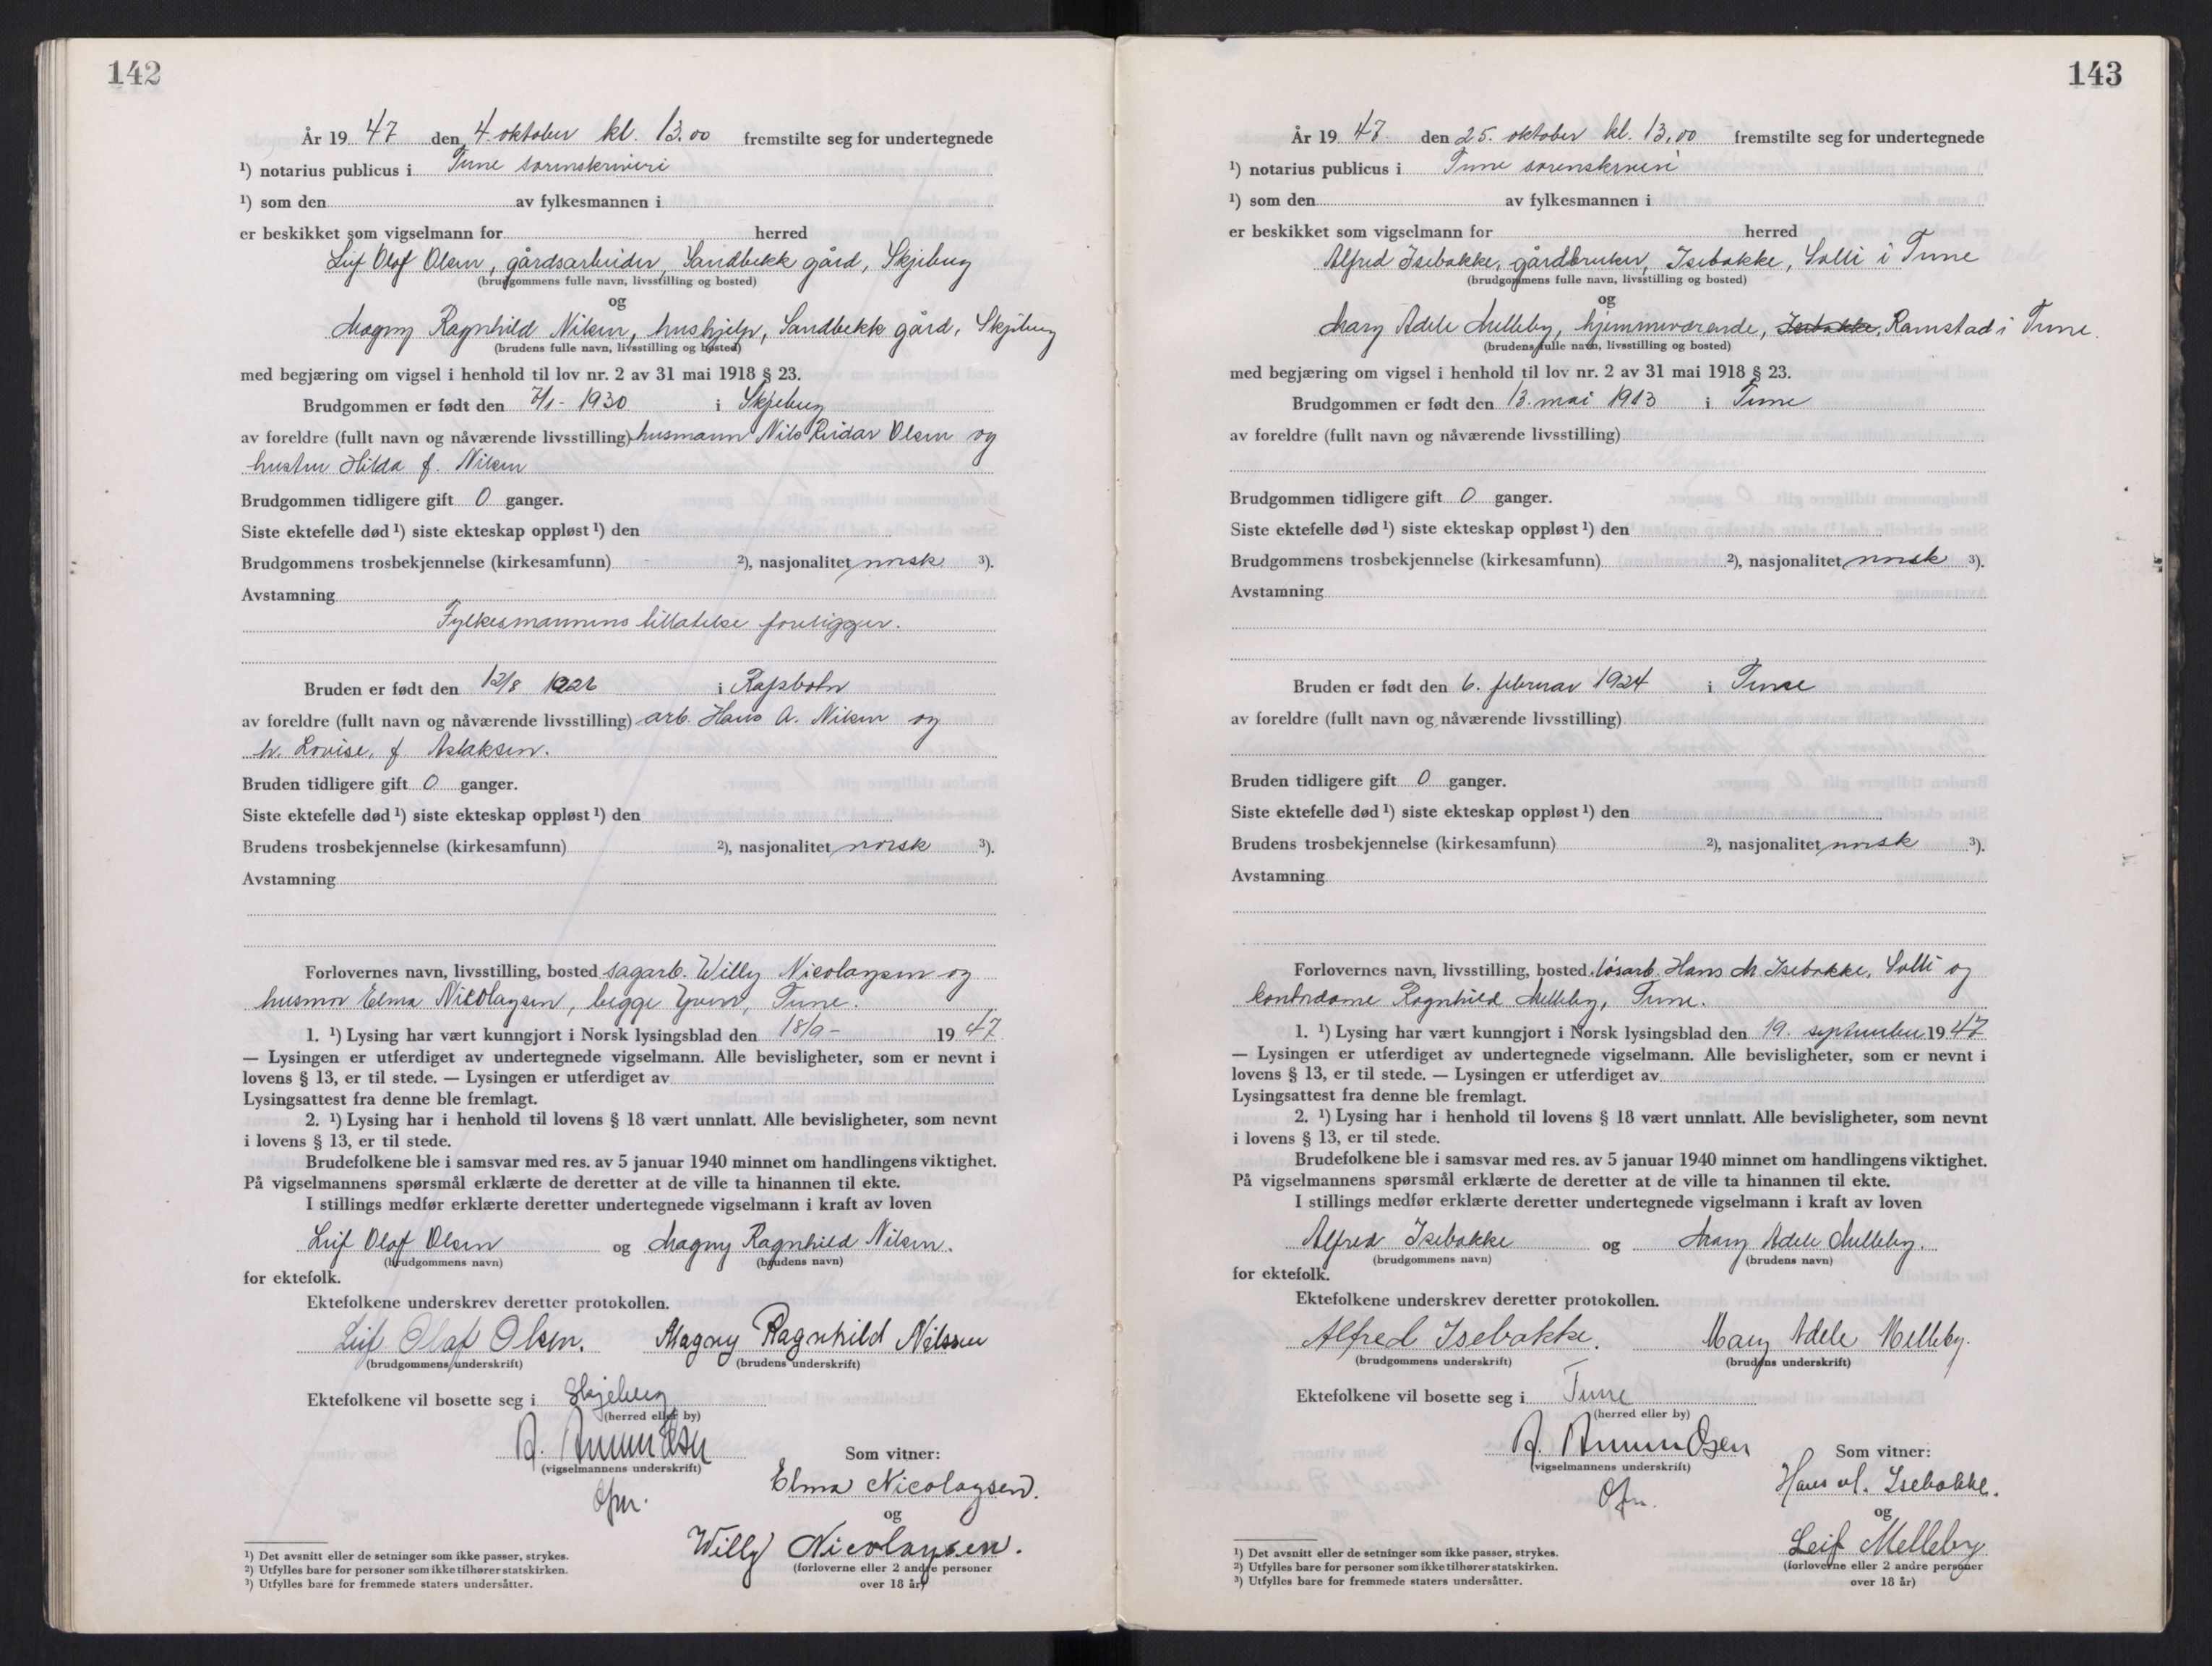 142
År 19 47 den 4. oktober kl. 13.00 fremstilte seg for undertegnede
¹) notarius publicus i Tune sorenskriveri
¹) som den av fylkesmannen i
er beskikket som vigselmann for herred
Leif Olof Olsen, gårdsarbeider, Sandbekk gård, Skjeberg
(brudgommens fulle navn, livsstilling og bosted)
og
Magny Ragnhild Nilsen, hushjelp, Sandbekk gård, Skjeberg
(brudens fulle navn, livsstilling og bosted)
med begjæring om vigsel i henhold til lov nr. 2 av 31 mai 1918 § 23.
Brudgommen er født den 7/1- 1930 i Skjeberg
av foreldre (fullt navn og nåværende livsstilling) husmann Nils Reidar Olsen og
hustru Hilda f. Nilsen
Brudgommen tidligere gift 0 ganger.
Siste ektefelle død ¹) siste ekteskap oppløst ¹) den
Brudgommens trosbekjennelse (kirkesamfunn) ²), nasjonalitet norsk ³).
Avstamning
Fylkesmannens tillatelse foreligger.
Bruden er født den 12/8 1926 i
av foreldre (fullt navn og nåværende livsstilling) arb. Hans A. Nilsen og
h. Lovise, f. Aslaksen.
Bruden tidligere gift 0 ganger.
Siste ektefelle død ¹) siste ekteskap oppløst ¹) den
Brudens trosbekjennelse (kirkesamfunn) ²), nasjonalitet norsk ³).
Avstamning
Forlovernes navn, livsstilling, bosted sagarb. Willy Nicolaysen og
husmor Elma Nicolaysen, begge Yven, Tune.
1. ¹) Lysing har vært kunngjort i Norsk lysingsblad den 18/9- 19 47
— Lysingen er utferdiget av undertegnede vigselmann. Alle bevisligheter, som er nevnt i
lovens § 13, er til stede. — Lysingen er utferdiget av
Lysingsattest fra denne ble fremlagt.
2. ¹) Lysing har i henhold til lovens § 18 vært unnlatt. Alle bevisligheter, som nevnt
i lovens § 13, er til stede.
Brudefolkene ble i samsvar med res. av 5 januar 1940 minnet om handlingens viktighet.
På vigselmannens spørsmål erklærte de deretter at de ville ta hinannen til ekte.
I stillings medfør erklærte deretter undertegnede vigselmann i kraft av loven
Leif Olof Olsen og Magny Ragnhild Nilsen.
(brudgommens navn) (brudens navn)
for ektefolk.
Ektefolkene underskrev deretter protokollen.
Leif Olaf Olsen. Magny Ragnhild Nilssen
(brudgommens underskrift) (brudens underskrift)
Ektefolkene vil bosette seg i Skjeberg
(herred eller by)
A. Amundsen
(vigselmannens underskrift)
Som vitner:
Elma Nicolaysen.
og
Willy Nicolaysen.
(forloverne eller 2 andre personer
over 18 år)
¹) Det avsnitt eller de setninger som ikke passer, strykes.
²) Utfylles bare for personer som ikke tilhører statskirken.
³) Utfylles bare for fremmede staters undersåtter.
143
År 19 47. den 25. oktober kl. 13,00 fremstilte seg for undertegnede
¹) notarius publicus i Tune sorenskriveri
¹) som den av fylkesmannen i
er beskikket som vigselmann for herred
Alfred Isebakke, gårdbruker, Isebakke, Solli i Tune
(brudgommens fulle navn, livsstilling og bosted)
og
Mary Adele Melleby, hjemmeværende, Isebakke, Ramstad i Tune.
(brudens fulle navn, livsstilling og bosted)
med begjæring om vigsel i henhold til lov nr. 2 av 31 mai 1918 § 23.
Brudgommen er født den 13. mai 1913 i Tune
av foreldre (fullt navn og nåværende livsstilling)
Brudgommen tidligere gift 0 ganger.
Siste ektefelle død ¹) siste ekteskap oppløst ¹) den
Brudgommens trosbekjennelse (kirkesamfunn) ²), nasjonalitet norsk ³).
Avstamning
Bruden er født den 6. februar 1924 i Tune
av foreldre (fullt navn og nåværende livsstilling)
Bruden tidligere gift 0 ganger.
Siste ektefelle død ¹) siste ekteskap oppløst ¹) den
Brudens trosbekjennelse (kirkesamfunn) ²), nasjonalitet norsk ³).
Avstamning
Forlovernes navn, livsstilling, bosted løsarb. Hans M. Isebakke, Solli og
kontordame Ragnhild Melleby, Tune.
1. ¹) Lysing har vært kunngjort i Norsk lysingsblad den 19. september 19 47
— Lysingen er utferdiget av undertegnede vigselmann. Alle bevisligheter, som er nevnt i
lovens § 13, er til stede. — Lysingen er utferdiget av
Lysingsattest fra denne ble fremlagt.
2. ¹) Lysing har i henhold til lovens § 18 vært unnlatt. Alle bevisligheter, som nevnt
i lovens § 13, er til stede.
Brudefolkene ble i samsvar med res. av 5 januar 1940 minnet om handlingens viktighet.
På vigselmannens spørsmål erklærte de deretter at de ville ta hinannen til ekte.
I stillings medfør erklærte deretter undertegnede vigselmann i kraft av loven
Alfred Isebakke og Mary Adele Melleby.
(brudgommens navn) (brudens navn)
for ektefolk.
Ektefolkene underskrev deretter protokollen.
Alfred Isebakke. Mary Adele Melleby.
(brudgommens underskrift) (brudens underskrift)
Ektefolkene vil bosette seg i Tune
(herred eller by)
A. Amundsen
(vigselmannens underskrift)
Som vitner:
Hans M. Isebakke.
og
Leif Melleby
(forloverne eller 2 andre personer
over 18 år)
¹) Det avsnitt eller de setninger som ikke passer, strykes.
²) Utfylles bare for personer som ikke tilhører statskirken.
³) Utfylles bare for fremmede staters undersåtter.